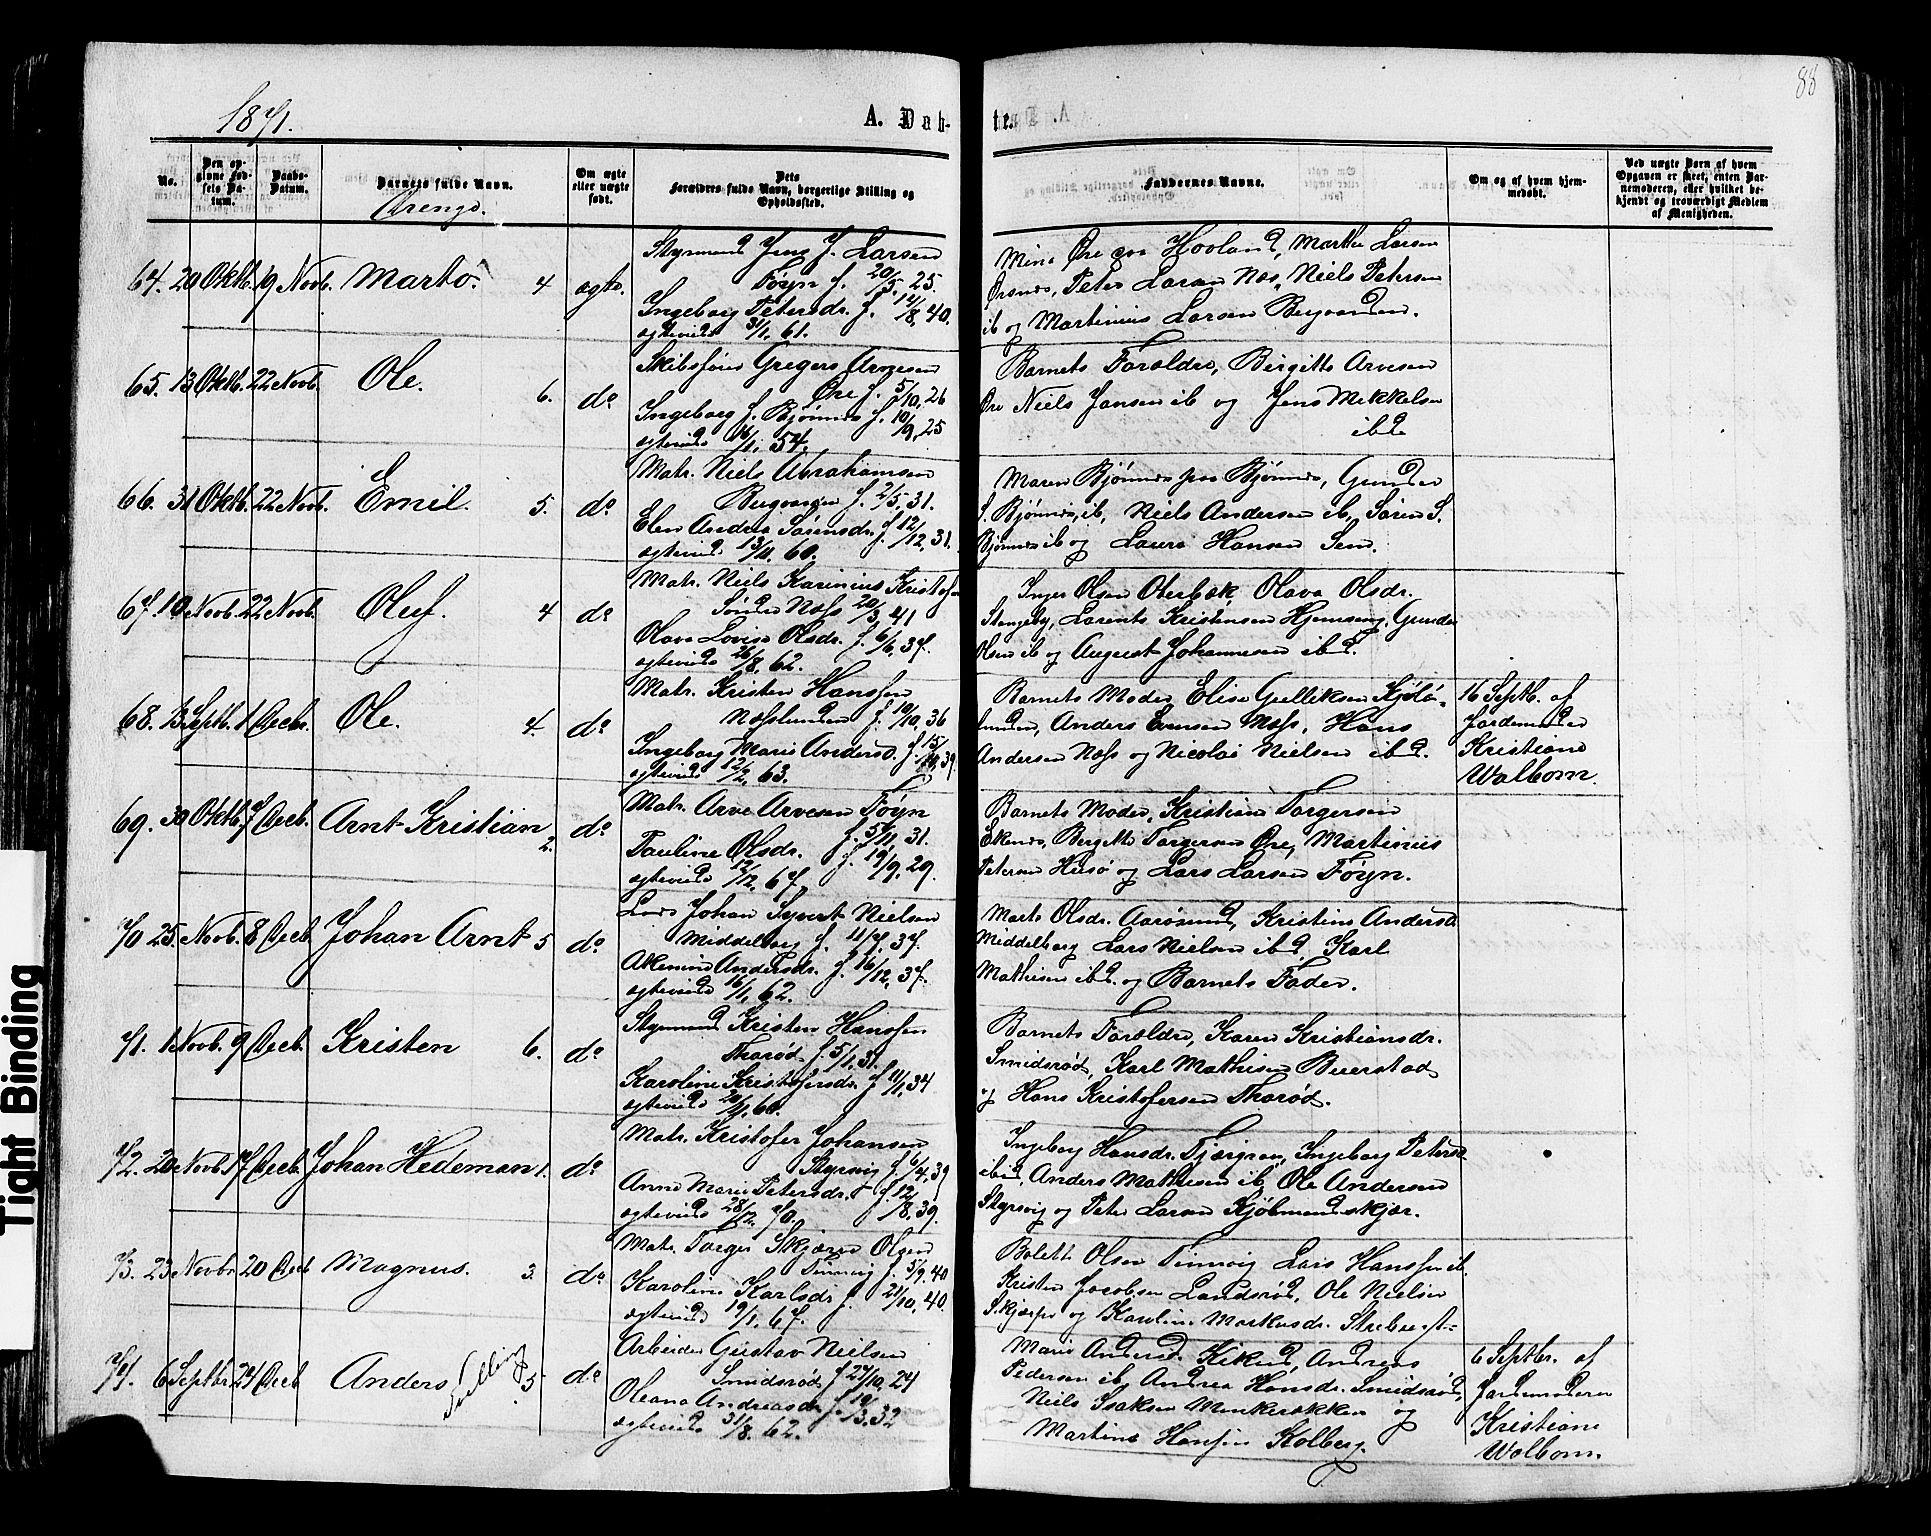 88
1871.
A. Døb-
te.
No.
Den op-
givne Fød-
sels Da-
tum.
Daabs-
Datum.
Barnets fulde Navn.
Drenge.
Om ægte
eller uægte
født.
Dets
Forældres fulde Navn, borgerlige Stilling og
Opholdssted.
Faddernes Navne.
Om og af hvem hjem-
medøbt.
Ved uægte Børn af hvem
Opgaven er skeet, enten Bar-
nemoderen, eller hvilket be-
kjendt og troværdigt Medlem
af Menigheden.
64. 20 Oktb. 19 Novb. 4 ægte.
Styrmand Jens J. Larsen
Føyn f. 20/5. 25.
Ingeborg Petersdr. f. 12/8, 40.
ægteviede 31/1. 61.
Larsen
Peter Larsen Næs, Niels Petersen
ib og Martinius Larsen
65. 13 Oktb. 22 Novb. Ole. 6. do
Skibsfører Gregers Arvesen
Øre f. 5/10, 26
Ingeborg f. Bjønnes f. 10/9, 25
ægteviede 16/1. 54.
Barnets Forældre, Birgitte Arvesen
Øre Niels Jansen ib og Jens Mikkelsen
ibd
66. 31 Oktb. 22 Novb. Emil. 5. do
Matr. Niels Abrahamsen
f. 2/5, 31.
Elen Andrea Sørensdr. f. 12/12, 31.
ægteviede 13/11. 60.
Maren Bjønnes paa Bjønnes, Gunder
S. Bjønnes, ib, Niels Andersen ib, Søren S.
Bjønnes ib og Laura Hansen Sem.
67. 10 Novb. 22 Novb. Oluf. 4 do
Matr. Niels Karinius Kristofersen
Næss 20/3, 41
Olava Lovise Olsdr. f. 6/6, 37.
ægteviede 26/8, 62.
Inger Olsen Oterbæk Olava Olsdr.
Stangeby, Larents Kristensen Hjemseng, Gunder
Olsen ib og August Johannesen ibd.
68. 13 Septb. 1 Decbr. Ole. 4. do
Matr. Kristen Hanssen
Næsslunden f. 19/10, 36
Ingeborg Marie Andersd. f. 15/10, 39.
ægteviede 12/2, 63.
Barnets Moder, Elise Gulliksen
Anders Evensen Næss, Hans
Andersen Næss og Nicolai Nielsen ibd.
16 Septb. af
Jordemoder
Kristiane
Walbom.
69. 30 Oktb. 7 Decb. Arnt Kristian 2. do
Matr. Arve Arvesen Føyn
f. 5/11, 31.
Pauline Olsdr. f. 19/9, 29.
ægteviede 12/12, 67.
Barnets Moder, Kristiane Torgersen
Ekenes, Bergitte Torgersen Øre, Martinius
Petersen Husø og Lars Larsen Føyn.
70 25. Novb. 8 Decb. Johan Arnt 5 do
Lods Johan Syvert Nielsen
Middelborg f. 11/7, 37.
Andersdr. f. 16/12, 37.
ægteviede 16/1, 62.
Marte Olsdr. Aarøsund, Kristine Andersd.
Middelborg Lars Nielsen ibd Karl
Mathisen ibd. og Barnets Fader.
71. 1 Novb. 9 Decb. Kristen 6. do
Styrmand Kristen Hanssen
Thorød f. 5/1, 31.
Karoline Kristofersdr. f. 11/1, 34
ægteviede
Barnets Forældre, Karen Kristiansdr.
Smidsrød, Karl Mathisen Buerstad
og Hans Kristofersen Thorød.
72. 20 Novb. 17 Decb. Johan Hedeman 1. do
Matr. Kristofer Johansen
Styrsvig f. 6/4, 39
Anne Marie Petersdr. f. 12/8, 39.
ægteviede 28/12. 70.
Ingeborg Hansdr. Ingeborg Petersd.
ibid, Anders Mathisen ib, Ole Andersen
Styrsvig og Peter Larsen Kjøbmandskjær.
73. 23 Novbr 20 Decb Magnus. 3. do
Matr. Torger Olsen
f. 5/9. 40
Karoline Karlsdr. f. 21/10, 40.
ægteviede 19/1, 67.
Olsen Lars Hanssen ib.
Kristen Jacobsen Landsrød, Ole Nielsen
og Karoline Markusdr.
74. 6 Septbr 24 Decb Anders Tvilling 5. do
Arbeider Gustav Nielsen
Smidsrød f. 27/10, 24
Oleana Andreasdr. f. 19/3. 32
ægteviede 31/8. 62.
Marie Andersd. Andreas
Pedersen ib, Andrea Hansdr. Smidsrød,
Niels Isaksen Munkerækken og
Martine Hansen Kolberg.
6 Septbr. af
Jordemoderen
Kristiane
Walbom.
Tight Binding